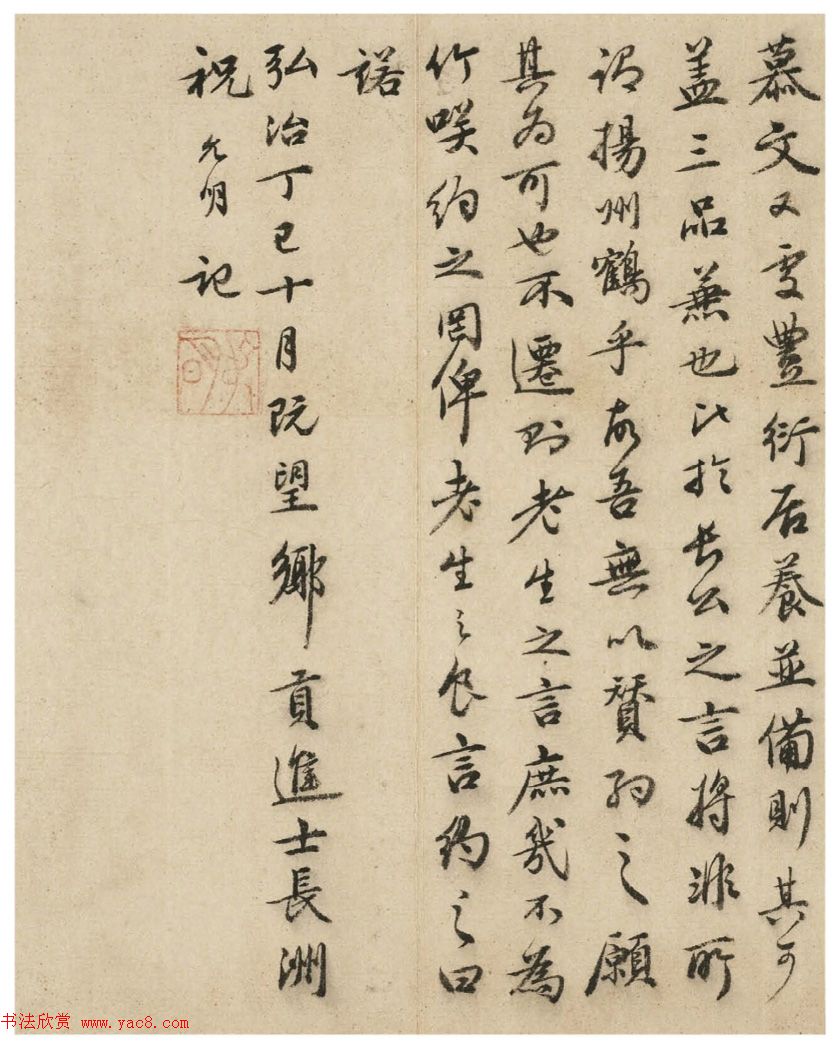 慕文又更豐衍居養並備則其可
蓋三品兼也比於長公之言將非所
謂揚州鶴乎故吾無以贊約之願
其為可也不遷則老生之言庶幾不為
竹咲約之罔俾老生之食言約之曰
諾
弘治丁巳十月既望鄉貢進士長洲
祝允明記
书法欣赏 www.yac8.com